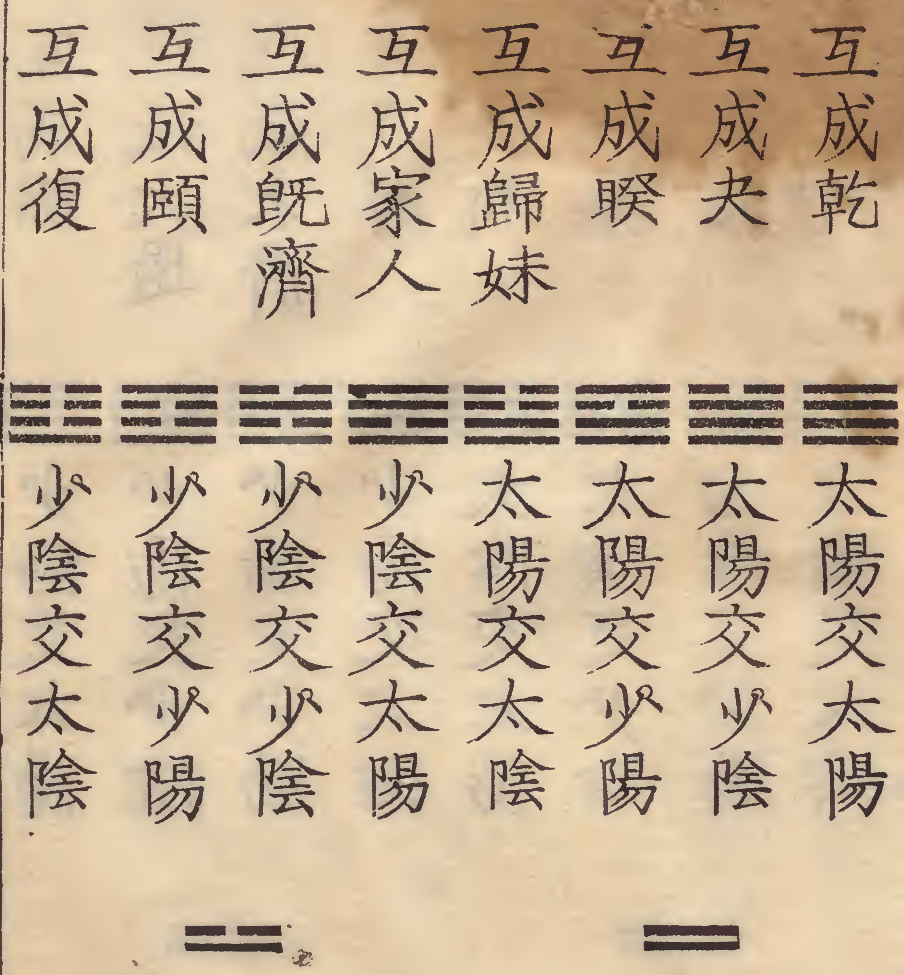 互成乾
互成夬
互成睽
互成歸妹
互成家人
互成旣濟
互成頤
互成復
太陽交太陽
太陽交少陰
太陽交少陽
太陽交太陰
少陰交太陽
少陰交少陰
少陰交少陽
少陰交太陰